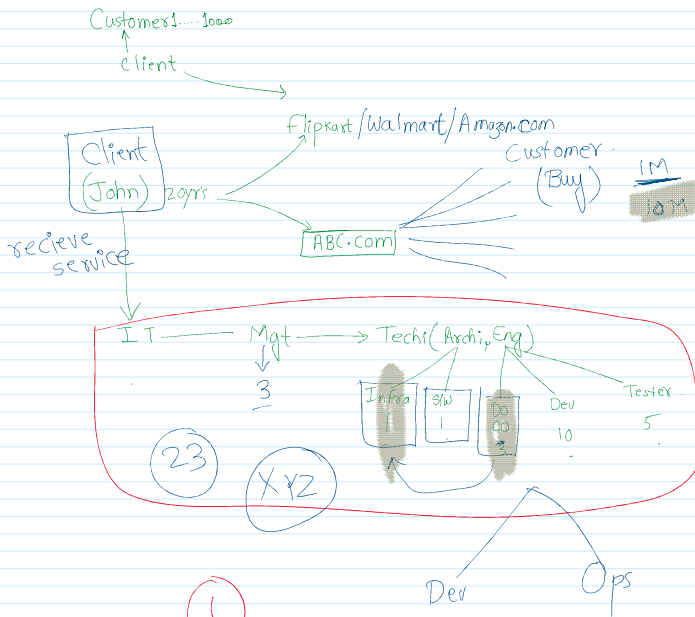 Customer1.....1000
client
Flipkart/Walmart/Amazon.com
Client
(John) 20yr's
Customer
(Buy)
1M
10M
ABC.com
recieve
service
IT Mgt Techi(Archi, Eng)
3
Infra
1
S/W
1
DO
3
Dev
10
Tester
5
23
XYZ
Dev
Ops
1